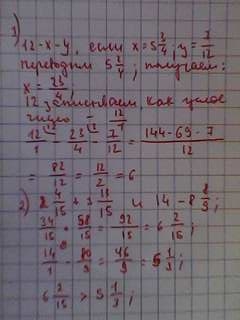 1)
12-x-y, если x=5 3/4; y=7/12
переводим 5 3/4; получаем:
x = 23/4;
12 записываем, как целое
число - 12/1
12/1 - 23/4 - 7/12 = (144-69-7)/12
= 82/12 = 12/2 = 6
2) 2 4/15 + 3 13/15 и 14 - 8 8/9;
34/15 + 58/15 = 92/15 = 6 2/15;
14/1 - 80/9 = 46/9 = 5 1/3;
6 2/15 > 5 1/3;